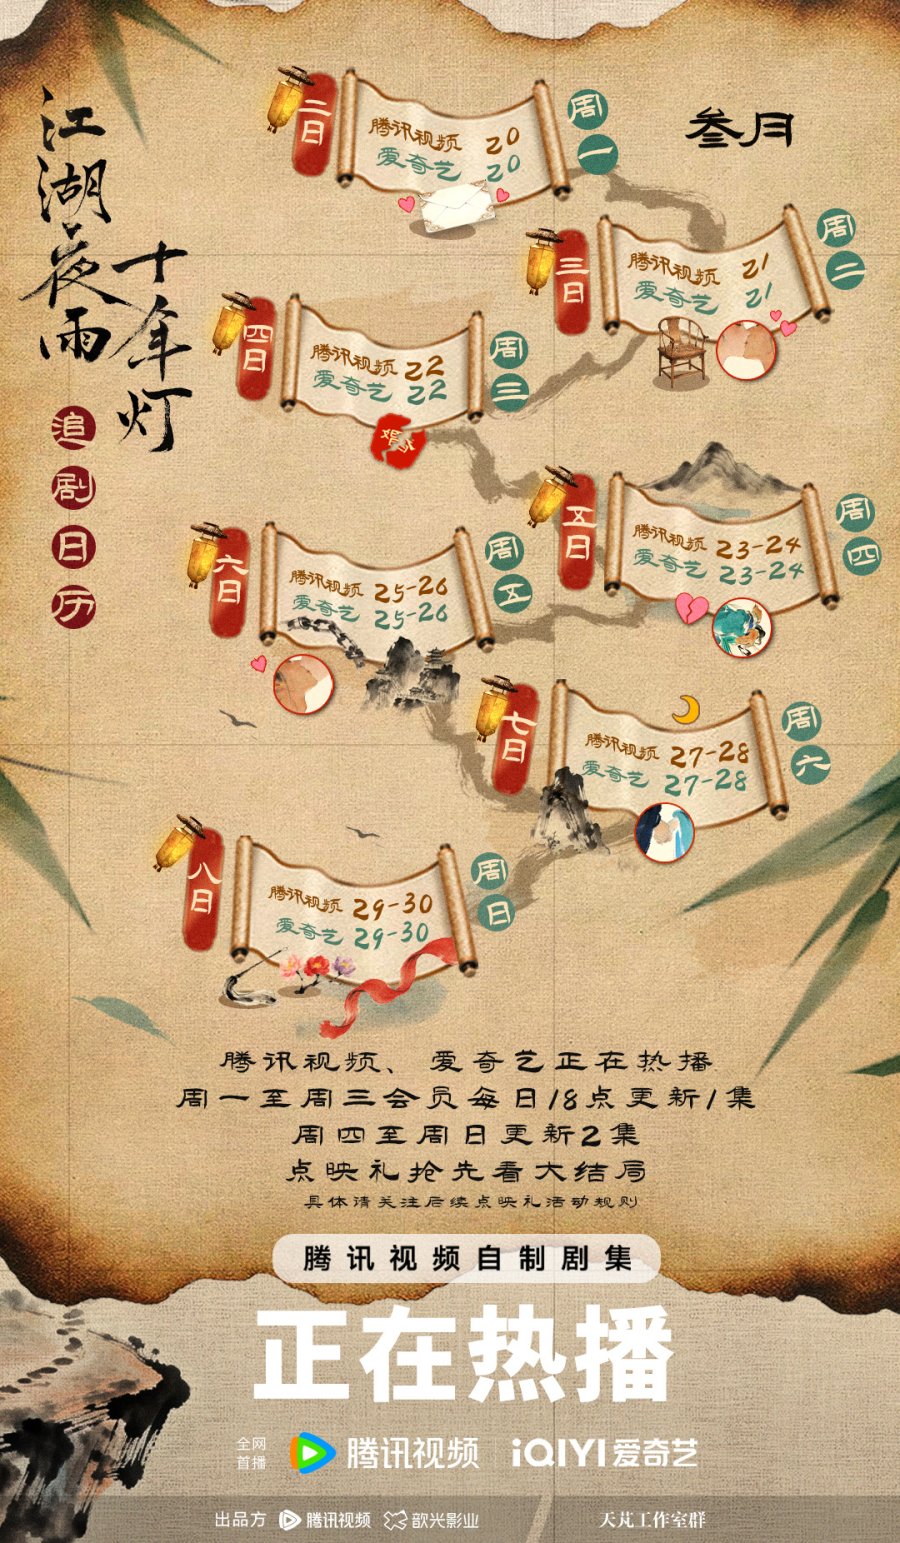 江湖夜雨
十年灯
追剧日历
叁月
二日
腾讯视频 20
爱奇艺 20
周一
三日
腾讯视频 21
爱奇艺 21
周二
四日
腾讯视频 22
爱奇艺 22
周三
五日
腾讯视频 23-24
爱奇艺 23-24
周四
六日
腾讯视频 25-26
爱奇艺 25-26
周五
七日
腾讯视频 27-28
爱奇艺 27-28
周六
八日
腾讯视频 29-30
爱奇艺 29-30
周日
腾讯视频、爱奇艺正在热播
周一至周三会员每日18点更新1集
周四至周日更新2集
点映礼抢先看大结局
具体请关注后续点映礼活动规则
腾讯视频自制剧集
正在热播
全网首播 腾讯视频 iQIYI 爱奇艺
出品方 腾讯视频 歆光影业 天芃工作室群